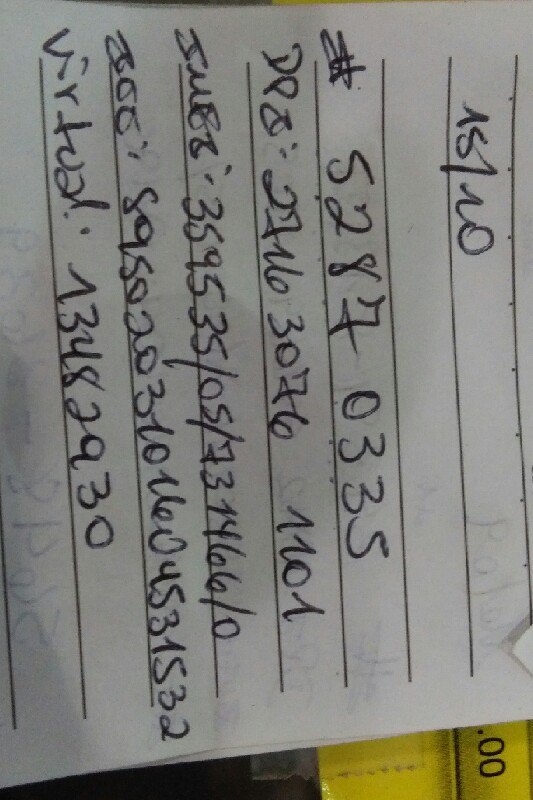 15/10
# 5287 0335
DPI: 2716 3076 1101
IMEI: 359535/05/731466/0
ICC: 8950203101604531532
Virtual: 13482930
.00